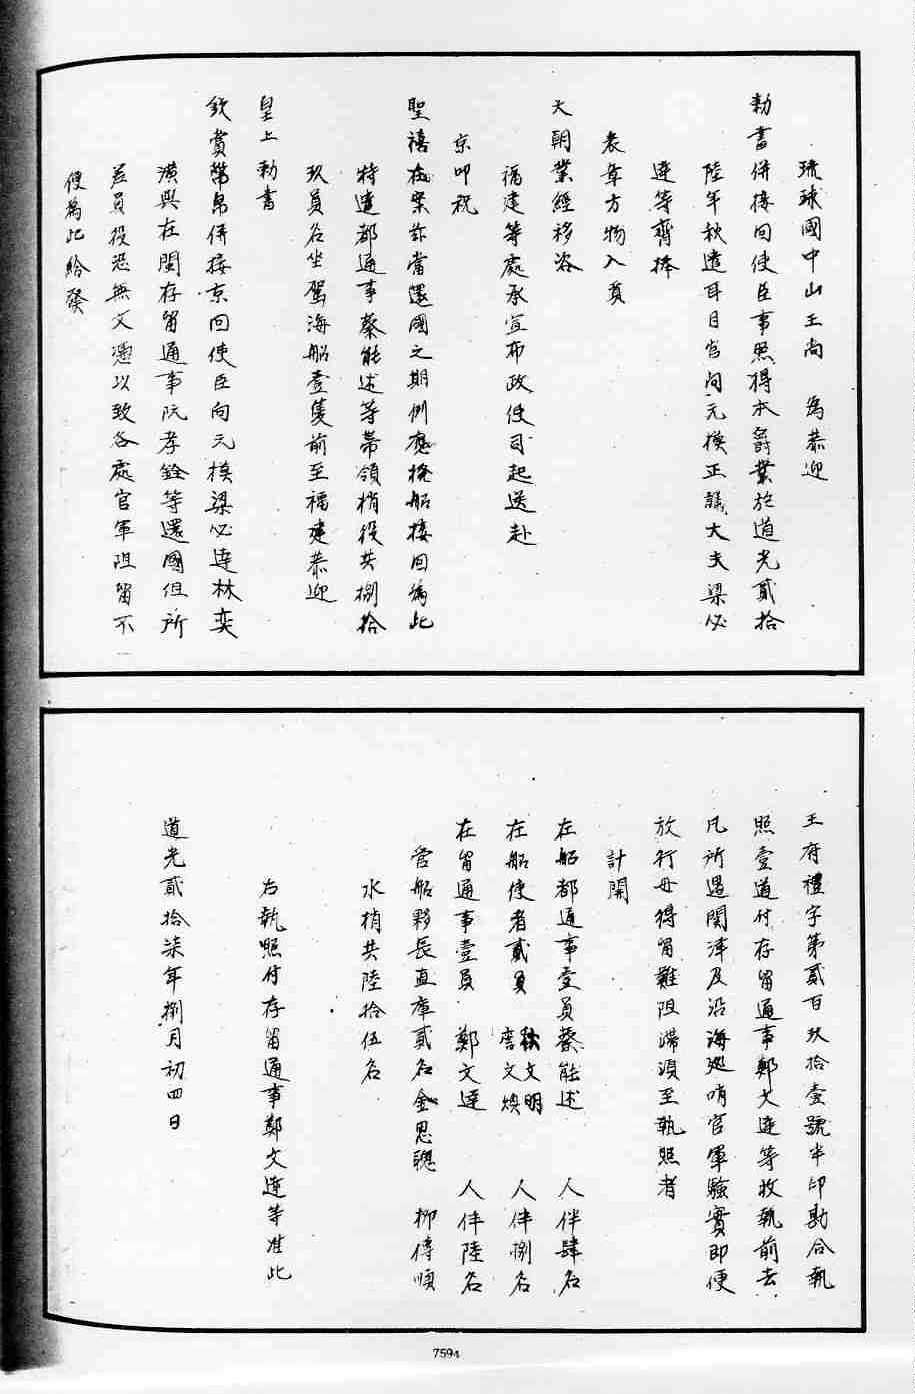 琉球國中山王尚　為恭迎
勅書併接回使臣事照得本爵業於道光貳拾
陸年秋遣耳目官向元模正議大夫梁必
達等齎捧
表章方物入貢
天朝業經移咨
福建等處承宣布政使司起送赴
京叩祝
聖禧在案茲當還國之期例應撥船接回為此
特遣都通事蔡能述等帶領梢役共捌拾
玖員名坐駕海船壹隻前至福建恭迎
皇上勅書
欽賞幣帛併接京回使臣向元模梁必達林奕
濆與在閩存留通事阮孝銓等還國但所
差員役恐無文憑以致各處官軍阻留不
便為此給發
王府禮字第貳百玖拾壹號半印勘合執
照壹道付存留通事鄭文達等收執前去
凡所過關津及沿海巡哨官軍驗實即便
放行毋得留難阻滯須至執照者
計開
在船都通事壹員蔡能述　人伴肆名
在船使者貳員　文明　唐文煥　人伴捌名
在留通事壹員　鄭文達　人伴陸名
管船夥長直庫貳名金思聰　柳傳順
水梢共陸拾伍名
右執照付存留通事鄭文達等准此
道光貳拾柒年捌月初四日
7594